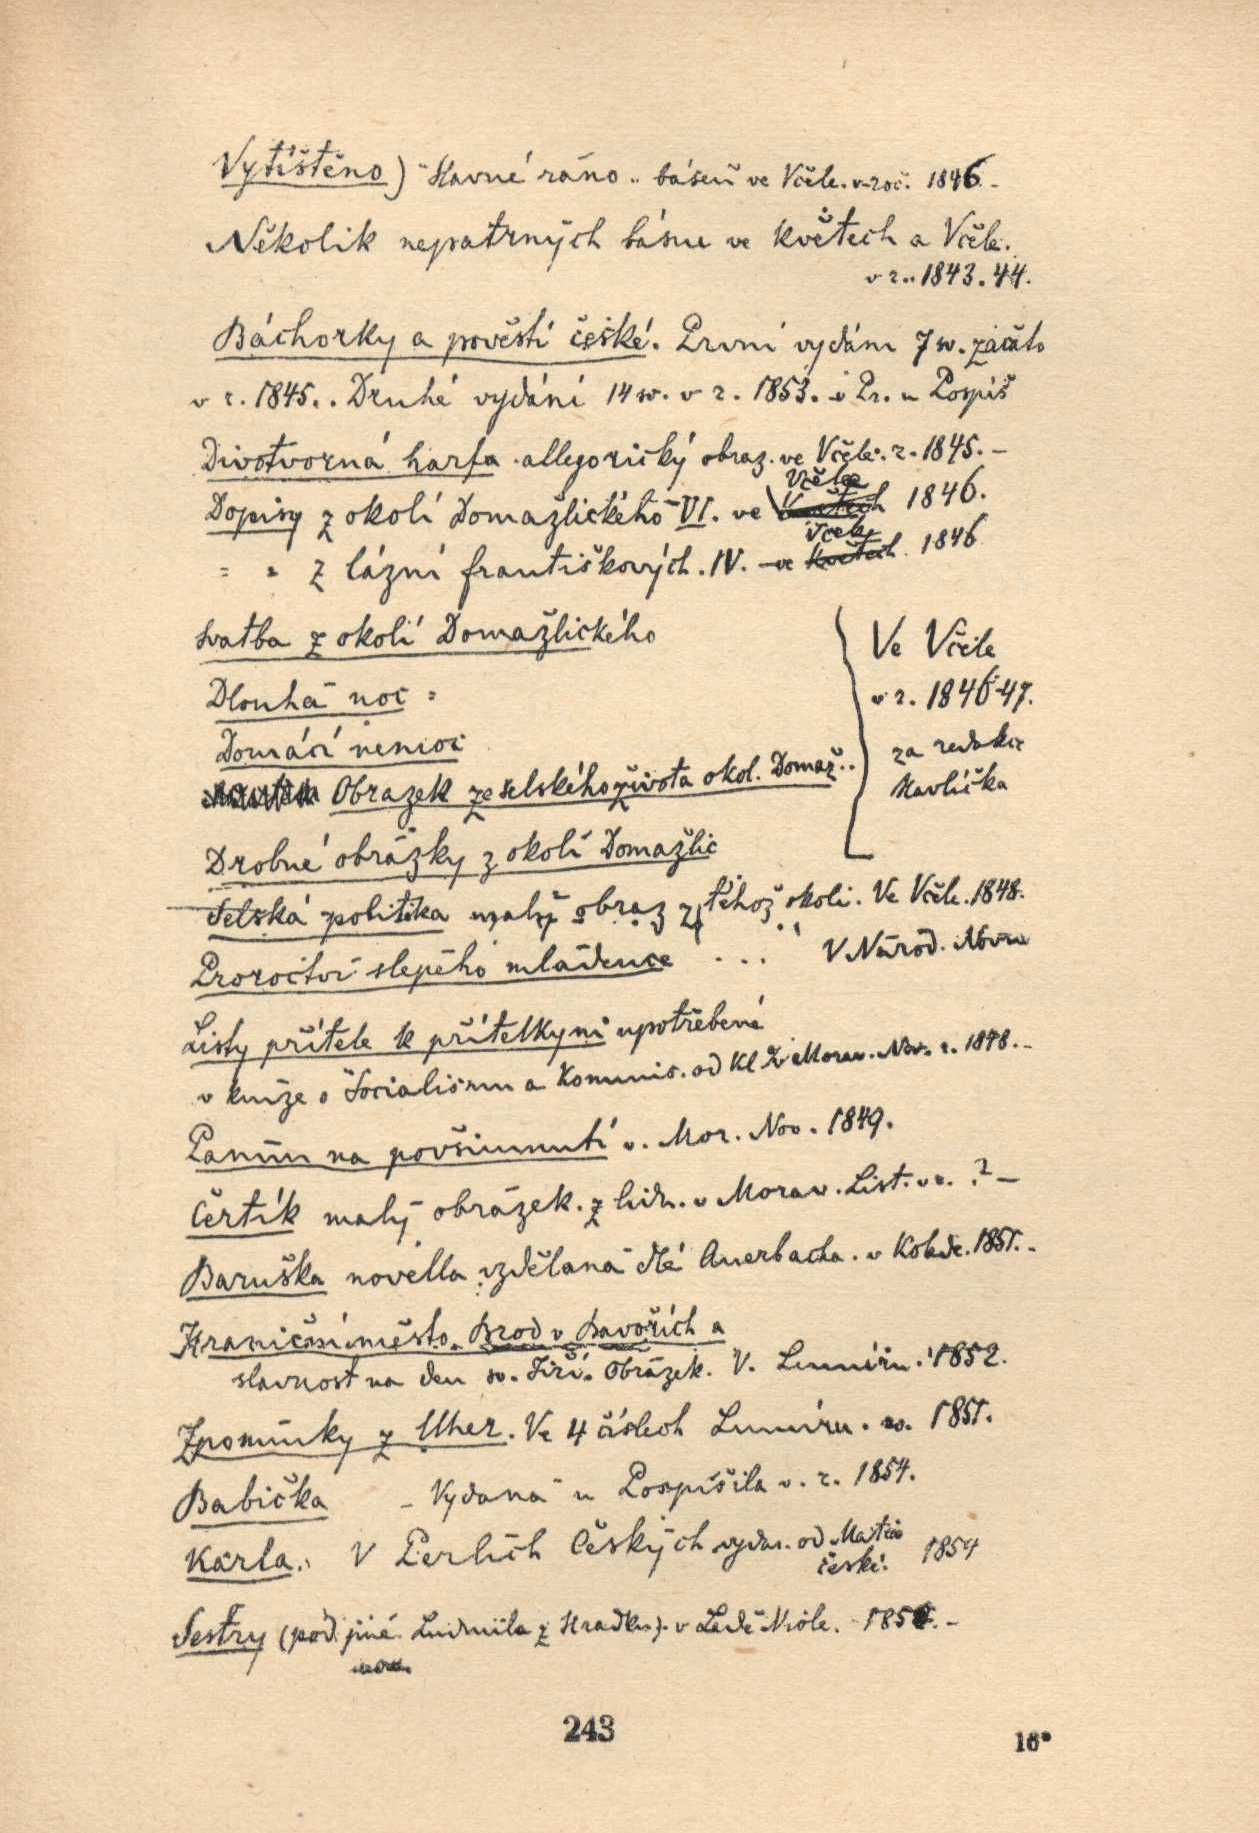 Vytištěno) „Slavné ráno„ báseň ve Včele. v roč. 1846. –
Několik nepatrných básní ve Květech a Včele.
v r. 1843. 44.
Báchorky a pověsti české. První vydání 7 sv. začato
v r. 1845. . Druhé vydání 14 sv. v r. 1853. v Pr. u Pospíš
Divotvorná harfa . allegorický obraz. ve Včele. r. 1845. –
Včele
Dopisy z okolí Domažlického VI. ve Květech 1846.
Včele
= = z lázní františkových. IV. – ve Květech 1846
svatba z okolí Domažlického
Ve Včele
Dlouhá noc =
v r. 1846-47.
Domácí nemoc
za redakce
Obrazek ze selského života okol. Domaž..
Havlíčka
Drobné obrázky z okolí Domažlic
Selská politika malý obraz z téhož okolí. Ve Včele. 1848.
Proroctví slepého mládence . . . V Národ. Novin
Listy přítele k přítelkyni upotřebené
v knize o Socialismu a Komunis. od Kl v Morav. Nov. r. 1848. –
Paním na povšimnutí v. Mor. Nov. 1849.
Čertík malý obrázek. z lidu. v Morav. List. v r. ? –
Baruška novella vzdělaná dlé Auerbacha. v Koledě. 1851. –
Hraniční město. Brod v Bavořích a
slavnost na den sv. Jiří. Obrázek. V. Lumíru. 1852.
Zpomínky z Uher. Ve 4 číslech Lumíru. 1851.
Babička – Vydaná u Pospíšila v. r. 1854.
Karla. V Perlích Českých vydan. od Matice
české. 1854
Sestry (pod jiné Ludmila z Hradku). v Ladě Nióle. 185 . –
243
16*